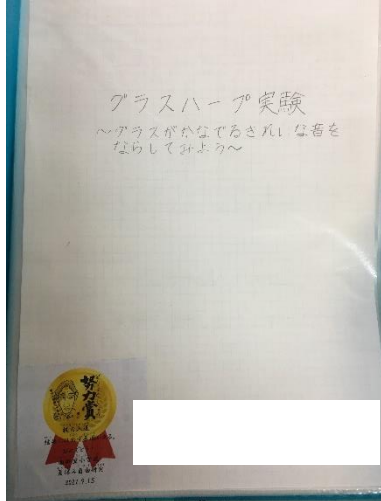 グラスハープ実験
〜グラスがかなでるきれいな音を
ならしてみよう〜
努力賞
夏休み自由研究
2021.9.15